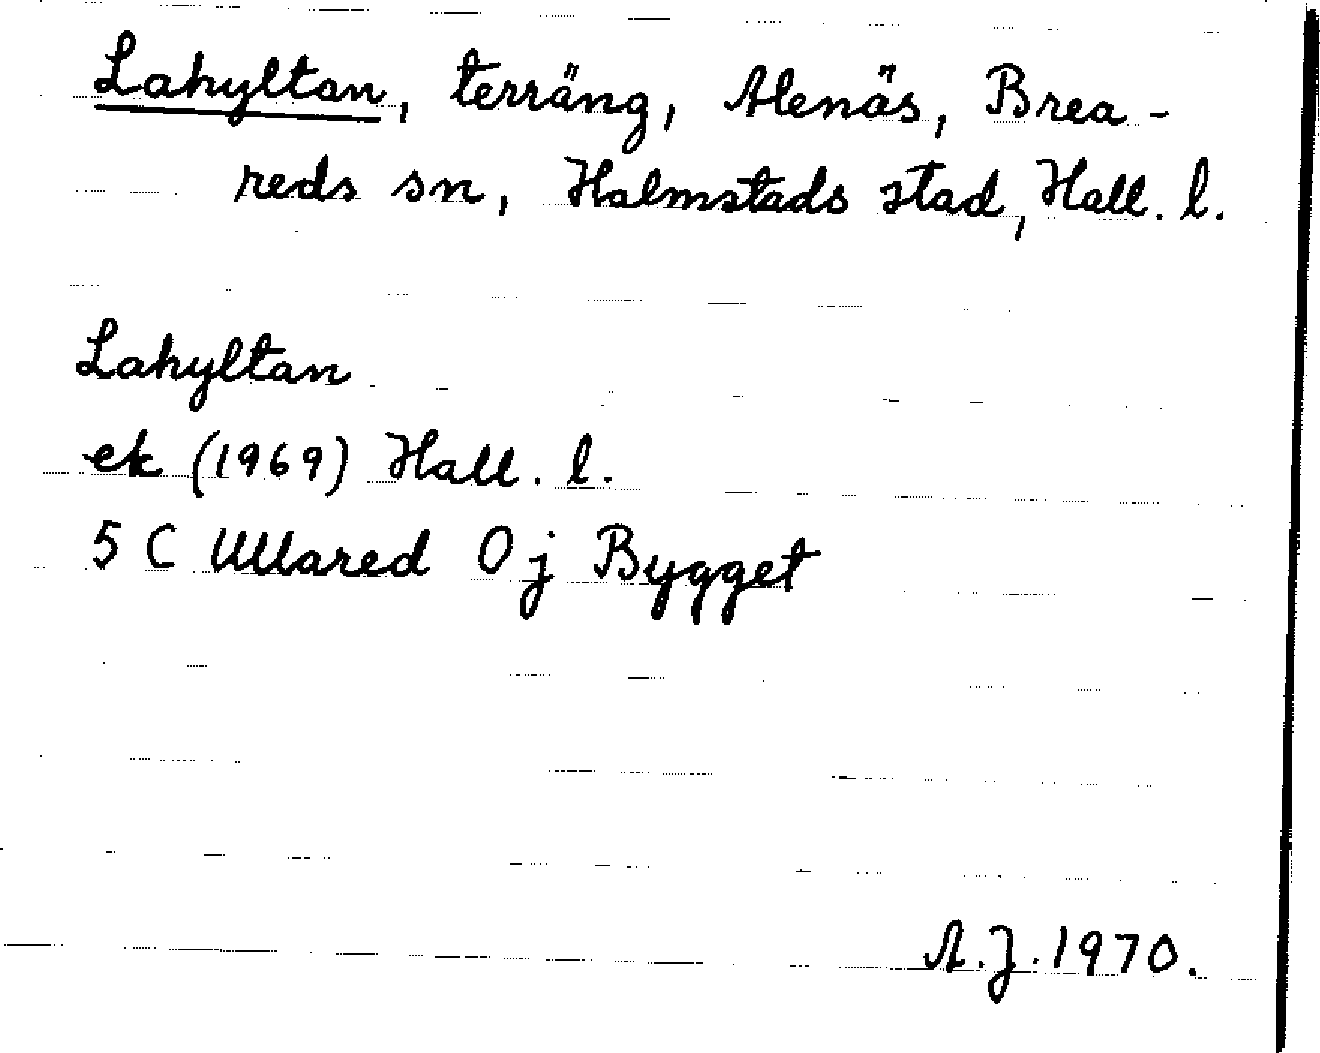 Lahyltan, terräng, Alenäs, Brea-
reds sn, Halmstads stad, Hall. l.
Lahyltan
ek (1969) Hall. l.
5 C Ullared 0 j Bygget
A.J. 1970.